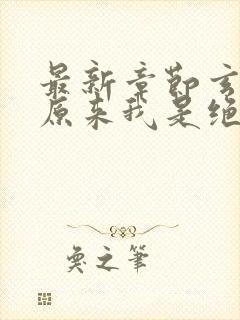 最新章节玄
原来我是绝
奐之笔